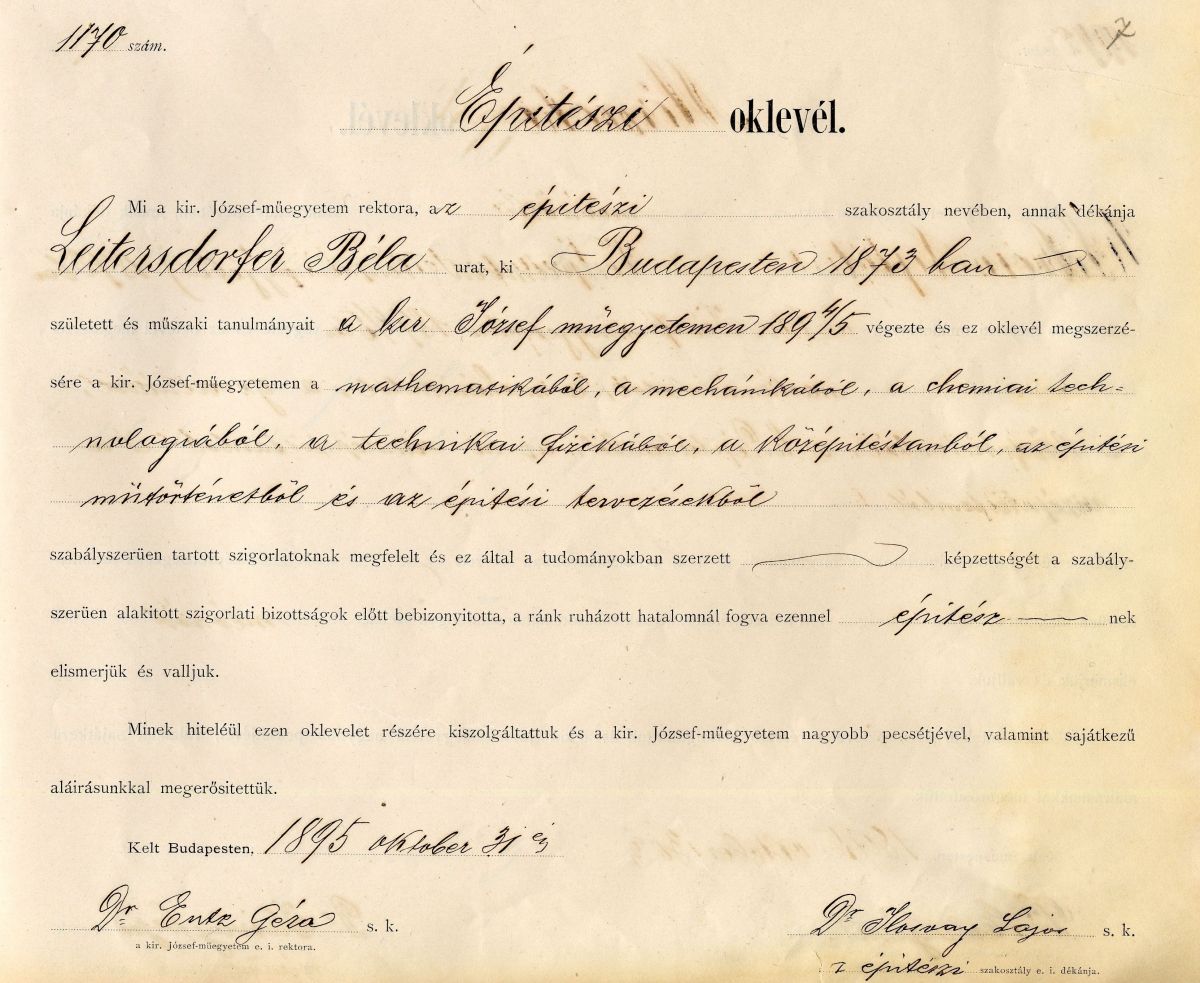 1170 szám.
Épitészi oklevél.
Mi a kir. József-műegyetem rektora, az épitészi szakosztály nevében, annak dékánja
Leitersdorfer Béla urat, ki Budapesten 1873 ban
született és műszaki tanulmányait a kir József műegyetemen 1894/5 végezte és ez oklevél megszerzé-
sére a kir. József-műegyetemen a mathematikából, a mechánikából, a chemiai tech=
nologiából, a technikai fizikából, a középitéstanból, az épitési
műtörténetből és az épitési tervezésekből
szabályszerüen tartott szigorlatoknak megfelelt és ez által a tudományokban szerzett képzettségét a szabály-
szerüen alakitott szigorlati bizottságok előtt bebizonyitotta, a ránk ruházott hatalomnál fogva ezennel épitész nek
elismerjük és valljuk.
Minek hiteléül ezen oklevelet részére kiszolgáltattuk és a kir. József-műegyetem nagyobb pecsétjével, valamint sajátkezű
aláirásunkkal megerősitettük.
Kelt Budapesten, 1895 oktober 31 én
Dr Entz Géza s. k.
a kir. József-műegyetem e. i. rektora.
Dr Ilosvay Lajos s. k.
z épitészi szakosztály e. i. dékánja.